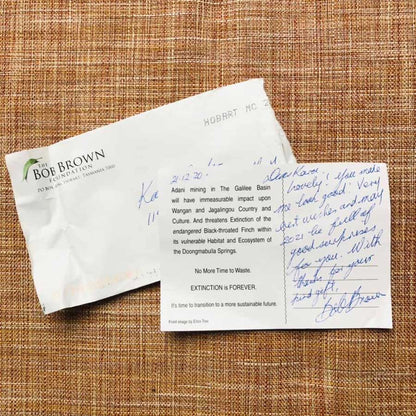 THE
BOB BROWN
FOUNDATION
HOBART MC
21.12.20.
Adani mining in The Galilee Basin
will have immeasurable impact upon
Wangan and Jagalingou Country and
Culture. And threatens Extinction of the
endangered Black-throated Finch within
its vulnerable Habitat and Ecosystem of
the Doongmabulla Springs.
No More Time to Waste.
EXTINCTION is FOREVER.
It's time to transition to a more sustainable future.
Front image by
Dear
Lovely! You make
me look good! Very
best wishes and may
2021 be full of
good surprises
for you. With
thanks for your
kind gift,
Bob Brown